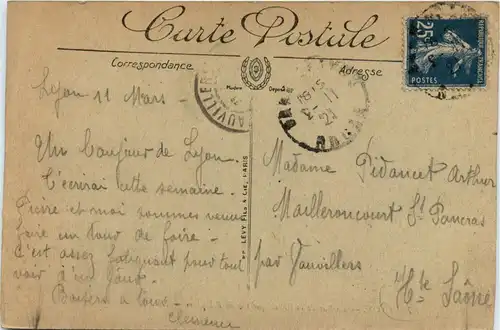 Carte Postale
Correspondance
Adresse
Modèle Déposé
25c
REPUBLIQUE FRANÇAISE
POSTES
Lyon 11 Mars -
Un bonjour de Lyon.
J'écrirai cette semaine.
Pierre et moi sommes venus
faire un tour de foire -
C'est assez fatiguant pour tout
voir d'un jour.
Baisers à tous -
Clémence
LÉVY FILS & Cie, PARIS
Madame Pidancet Arthur
Mailleroncourt St Pancras
par Vauvillers
Hte Saône